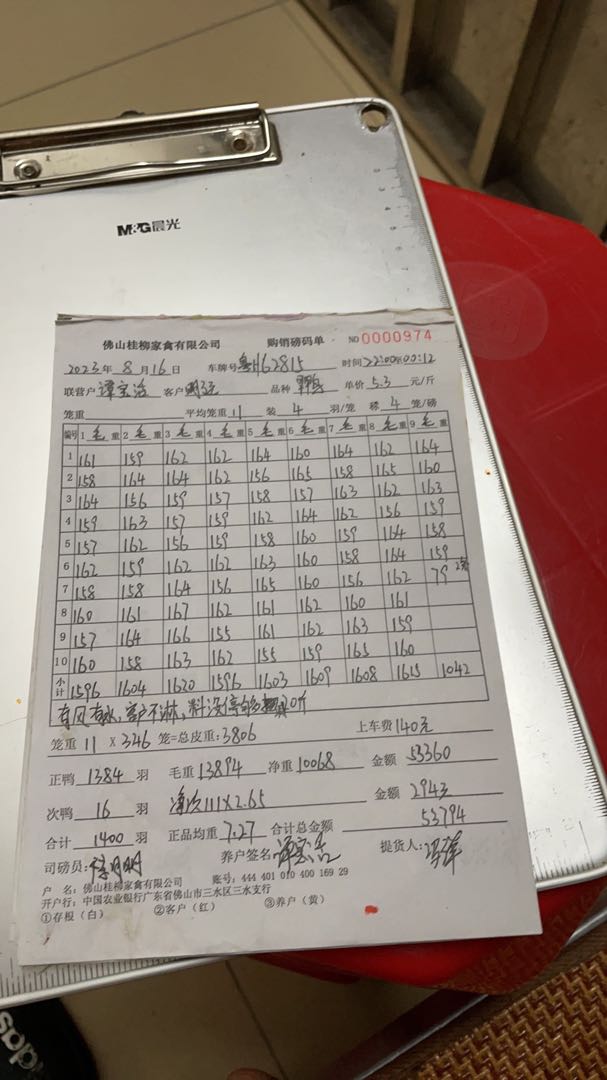 M&G晨光
佛山桂柳家禽有限公司 购销磅码单 NO 0000974
2023年 8月16日 车牌号 62815 时间 22:00至00:12
联营户 谭宝洽 客户 品种 单价 5.3 元/斤
笼重 平均笼重 11 装 4 羽/笼 称 4 笼/磅
编号 1 毛重 2 毛重 3 毛重 4 毛重 5 毛重 6 毛重 7 毛重 8 毛重 9 毛重
1 161 159 162 162 164 160 164 162 164
2 158 164 164 162 156 165 158 165 160
3 164 156 159 157 158 157 163 162 163
4 159 163 157 159 162 164 162 156 159
5 157 162 156 159 158 160 159 164 158
6 162 159 162 162 163 160 158 164 159
7 158 158 164 156 165 160 156 162 79 2笼
8 160 161 167 162 161 162 160 161
9 157 164 166 155 161 162 163 159
10 160 158 163 162 155 159 165 160
小计 1596 1604 1620 1596 1603 1609 1608 1615 1042
有风有水,客户不淋,料没停够 20斤
笼重 11 X 346 笼=总皮重: 3806 上车费 140元
正鸭 1384 羽 毛重 13894 净重 10068 金额 53360
次鸭 16 羽 净次111X2.65 金额 294元
合计 1400 羽 正品均重 7.27 合计总金额 53794
司磅员: 养户签名 谭宝洽 提货人:
户 名: 佛山桂柳家禽有限公司 账号: 444 401 010 400 169 29
开户行: 中国农业银行广东省佛山市三水区三水支行
①存根(白) ②客户(红) ③养户(黄)
adidas